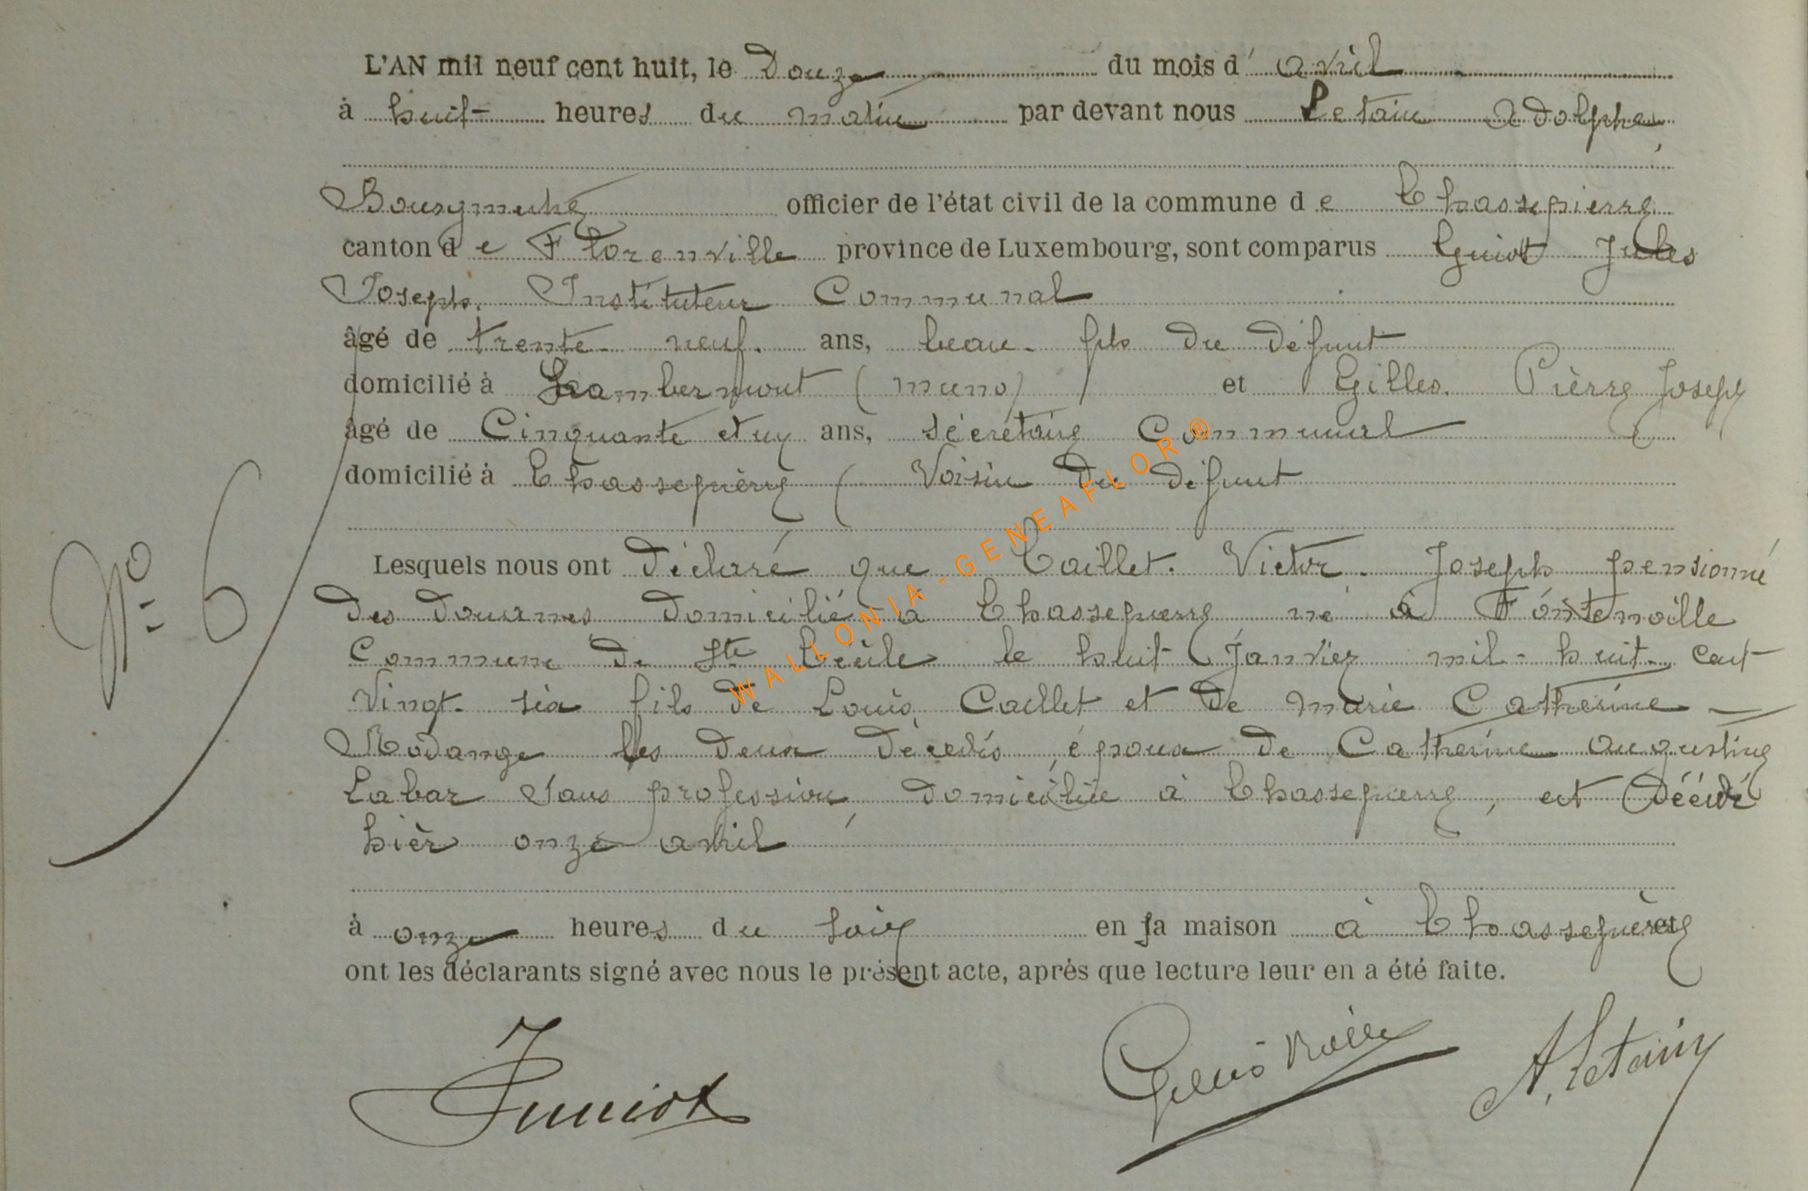 L'AN mil neuf cent huit, le Douze du mois d' avril
à huit heures du matin par devant nous Letain Adolphe,
Bourgmestre officier de l'état civil de la commune d e Chassepierre
canton d e Florenville province de Luxembourg, sont comparus Guiot Jules
Joseph. Instituteur Communal
âgé de trente-neuf. ans, beau-fils du défunt
domicilié à Lambermont (muno) et Gilles. Pièrre Joseph
âgé de Cinquante et un ans, sécrétaire Communal
domicilié à Chassepièrre ( Voisin du défunt
Nº 6
Lesquels nous ont Déclaré que Caillet. Victor. Joseph pensionné
des douanes domicilié à Chassepierre né à Fontenoille
Commune de Ste Cécile le huit Janvier mil-huit-cent
Vingt-six fils de Louis Caillet et de Marie Catherine
Rodange les deux décédés, époux de Catherine Augustine
Labar Sans profession, domiciliée à Chassepierre, est décédé
hièr onze avril
à onze heures du soir en sa maison à Chassepièrre et
ont les déclarants signé avec nous le présent acte, après que lecture leur en a été faite.
JGuiot Gilles A. Letain
WALLONIA-GENEAFLOR®